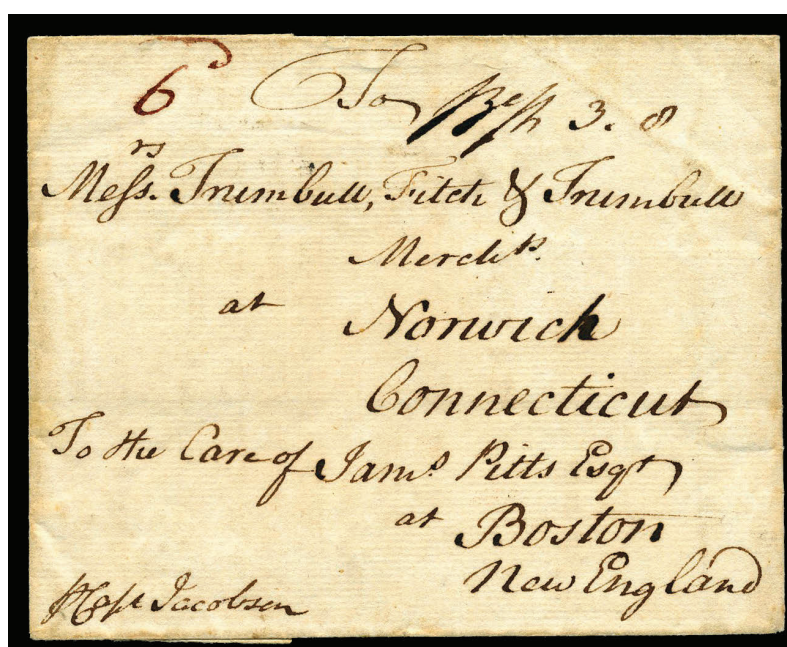 6 To 3. 8
Messrs. Trumbull, Fitch & Trumbull
Merchts.
at Norwich
Connecticut
To the Care of Jams Pitts Esqr
at Boston
New England
Capt Jacobsen